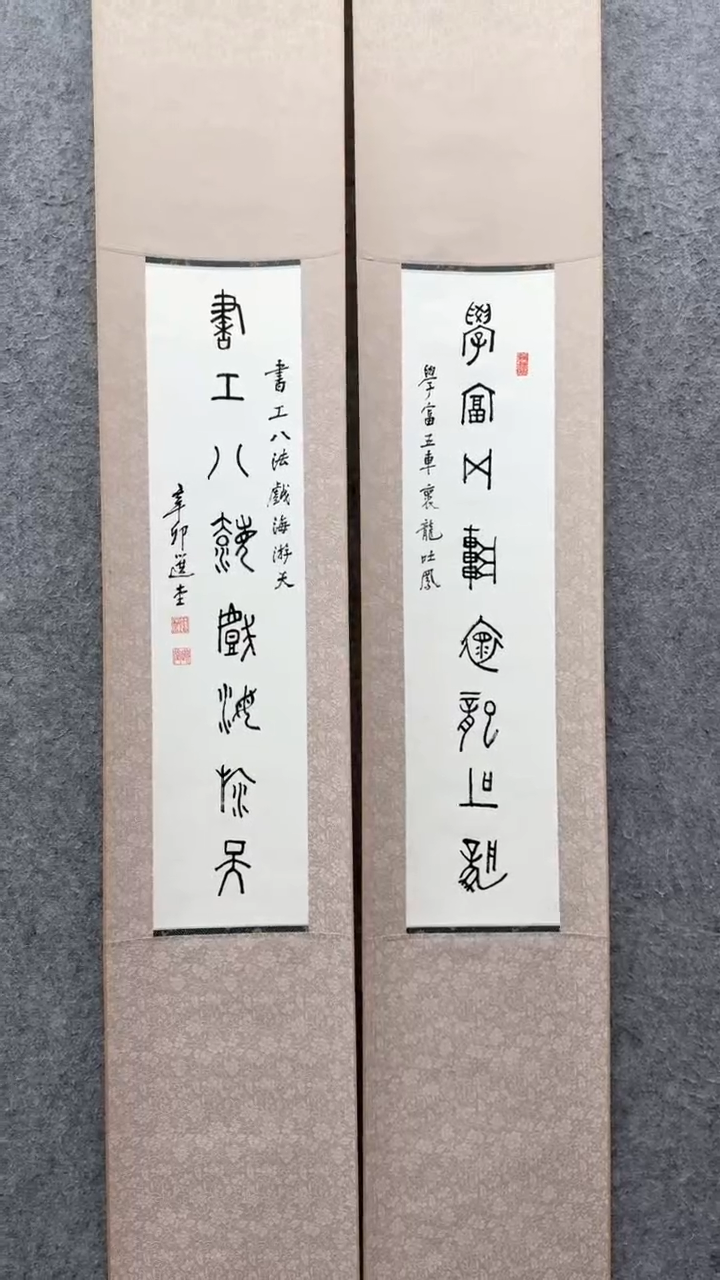 學富五車褱龍吐鳳
學富五車褱龍吐鳳
書工八法戲海游天
書工八法戲海游天
辛卯選堂